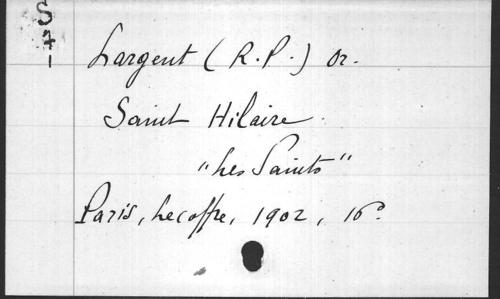 S
71
Largent (R.P.) Or.
Saint Hilaire.
"Les Saints"
Paris, Lecoffre, 1902, 16º.